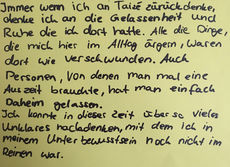 Immer wenn ich an Taizé zurückdenke,
denke ich an die Gelassenheit und
Ruhe die ich dort hatte. Alle die Dinge,
die mich hier im Alltag ärgern, waren
dort wie verschwunden. Auch
Personen, von denen man mal eine
Auszeit brauchte, hat man einfach
Daheim gelassen.
Ich konnte in dieser Zeit über so vieles
Unklares nachdenken, mit dem ich in
meinem Unterbewusstsein noch nicht im
Reinen war.